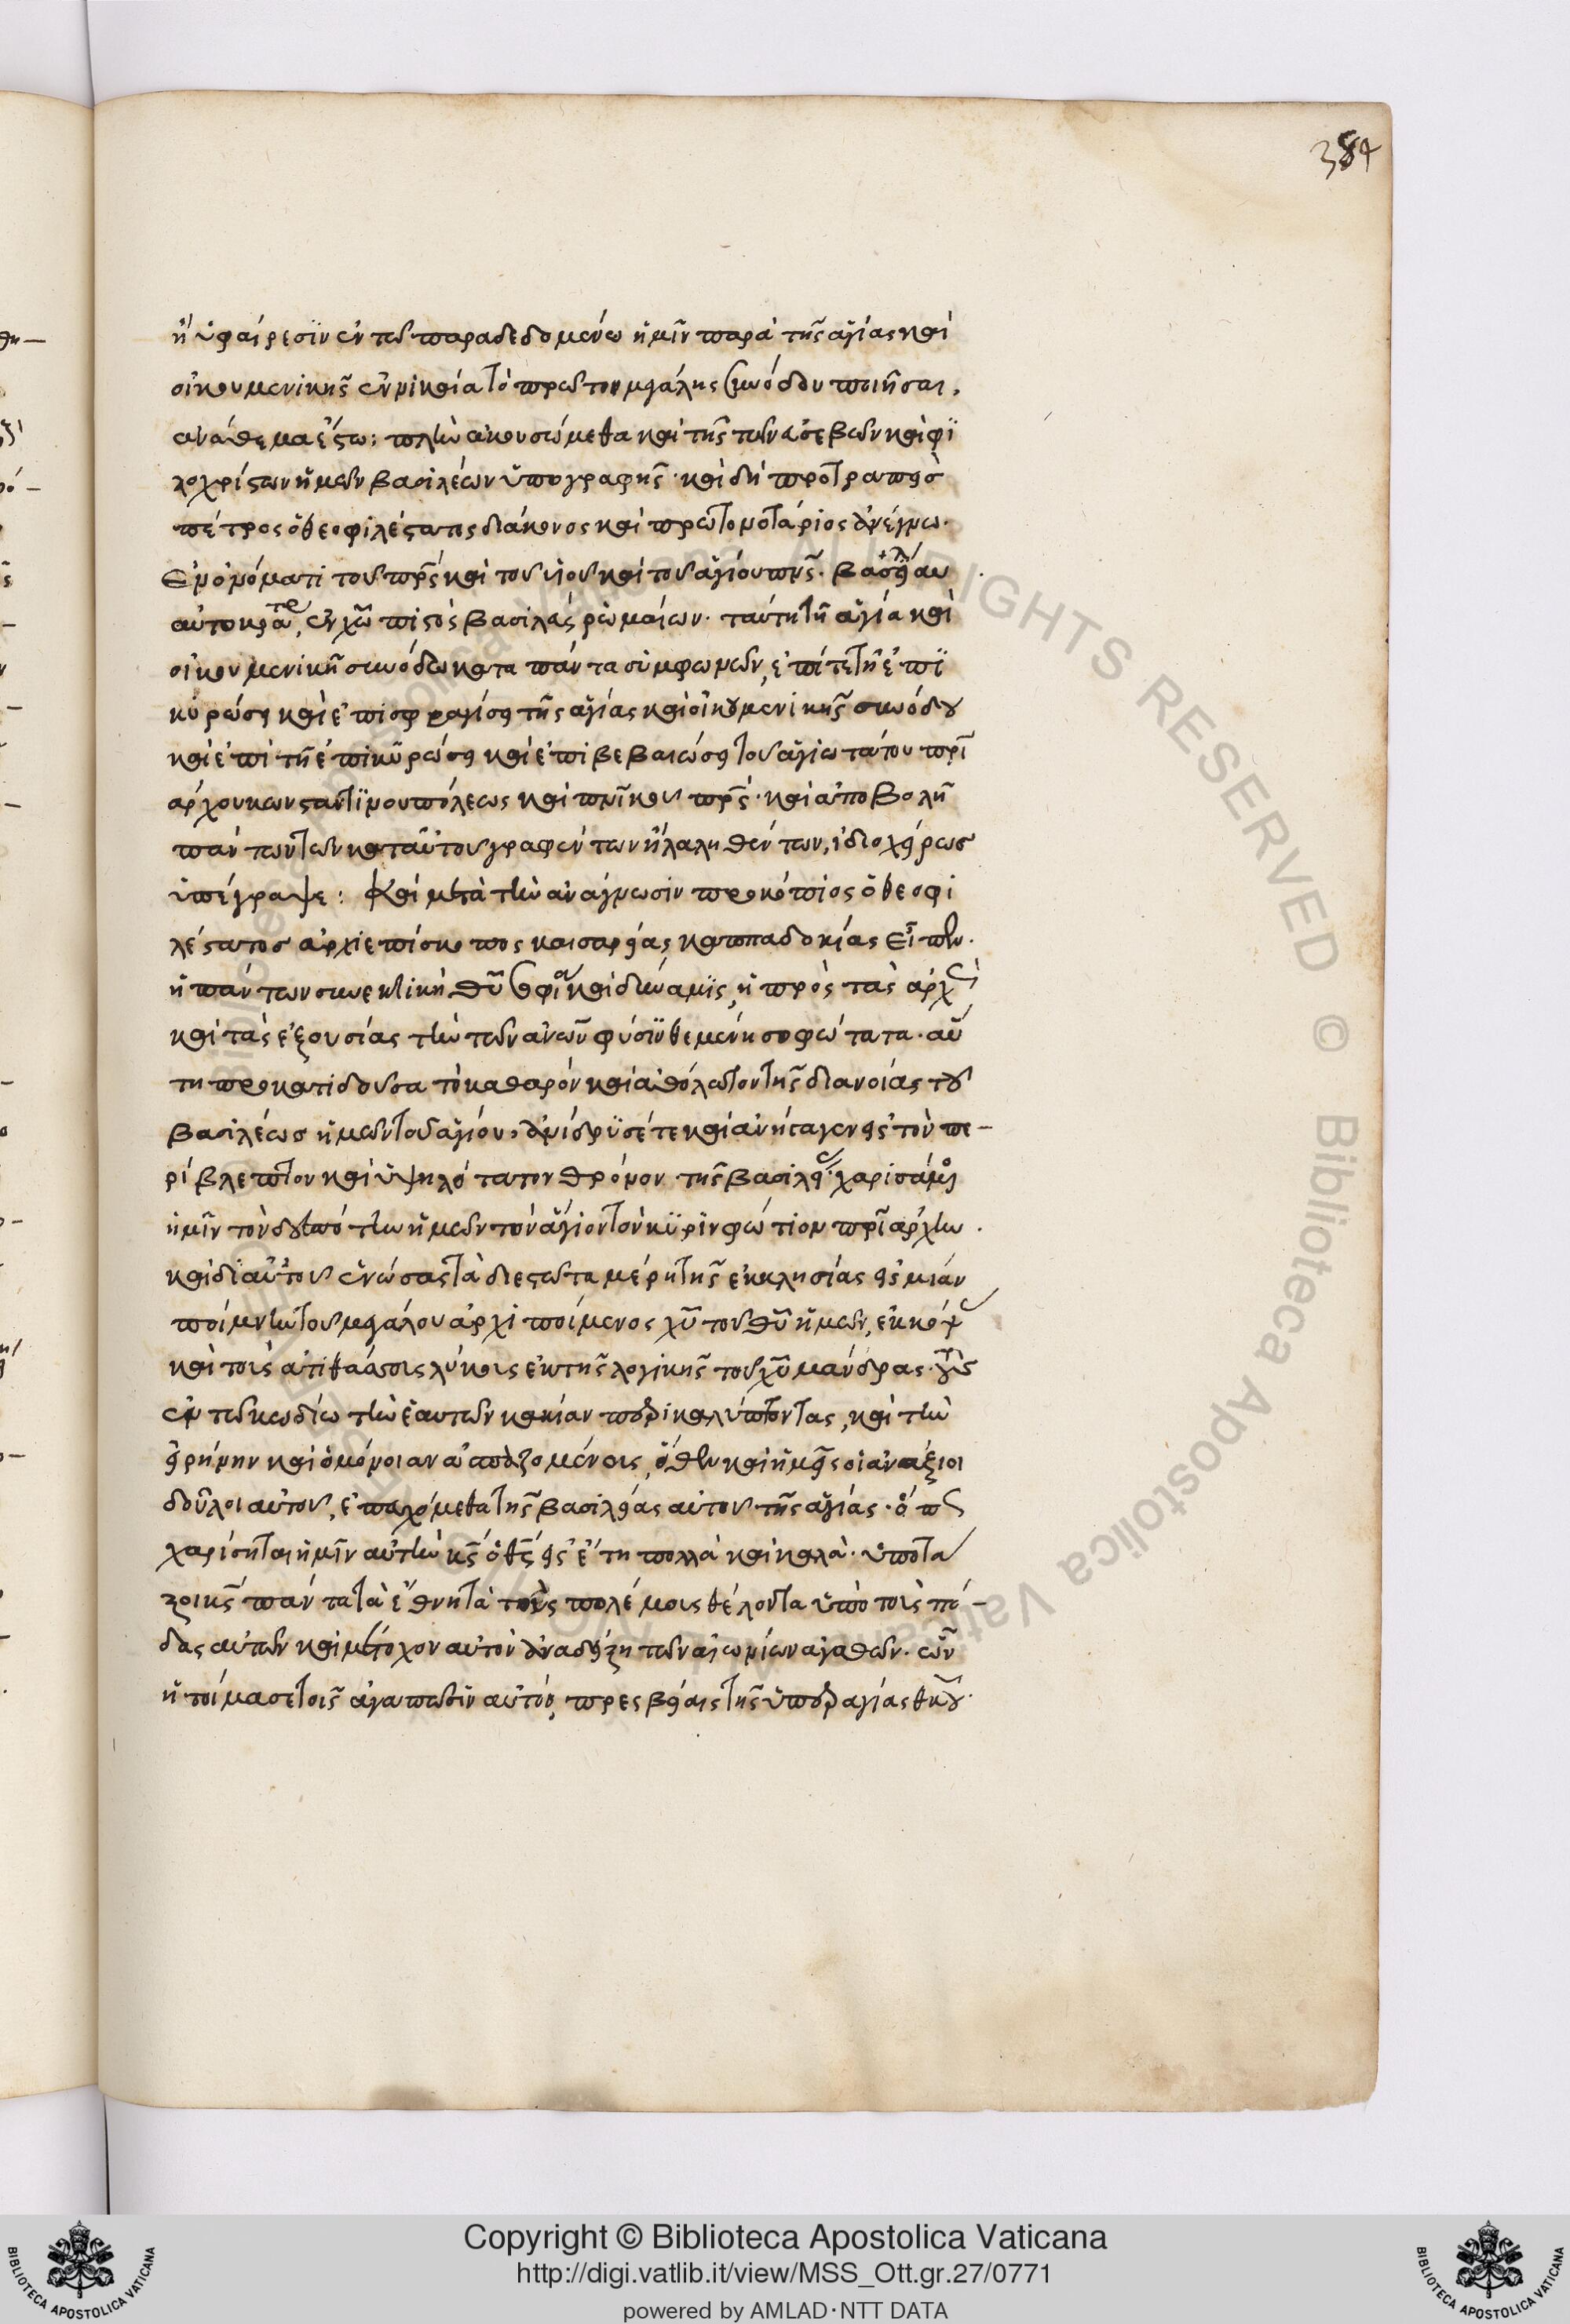 384
ἢ ὑφαίρεσϊν ἐν τῶ παραδεδομένω ἡμῖν παρὰ τῆς ἁγίας καὶ
οἰκουμενικῆς ἐν νικαία τὸ πρῶτον μεγάλης συνόδου ποιῆσαι,
ἀνάθεμα ἔστω: πλὴν ἀκουσώμεθα καὶ τῆς τῶν εὐσεβῶν καὶ φϊ
λοχρίστων ἡμῶν βασιλέων ὑπογραφῆς· καὶ δὴ προτραπεὶς
πέτρος ὁ θεοφιλέστατος διάκονος καὶ πρωτονοτάριος ἀνέγνω·
Ἐν ὀνόματι τοῦ πρς καὶ τοῦ υἱοῦ καὶ τοῦ ἁγίου πνς. βασίλειος
αὐτοκράτωρ, ἐν χῶ πιστὸς βασιλεὺς ῥωμαίων· ταύτη τῆ ἁγία καὶ
οἰκουμενικῆ συνόδω κατα πάντα συμφωνῶν, ἐπί τε τῆ ἐπϊ
κυρώσει καὶ ἐπισφραγίσει τῆς ἁγίας καὶ οἰκουμενικῆς συνόδου
καὶ ἐπὶ τῆ ἐπικυρώσει καὶ ἐπιβεβαιώσει τοῦ ἁγιωτάτου πρι
άρχου κωνσταντϊνουπόλεως καὶ πνικοῦ πρς· καὶ ἀποβολῆ
πάντων τῶν κατ αὐτοῦ γραφέντων ἢ λαληθέντων, ἰδιοχείρως
ὑπέγραψε: Καὶ μετὰ τὴν ἀνάγνωσιν προκόπιος ὁ θεοφι
λέστατος ἀρχιεπίσκοπος καισαρείας καππαδοκίας εἶπεν·
ἡ πάντων συνεκτικὴ θῦ σοφία καὶ δύναμϊς, ἡ πρὸς τὰς ἀρχὰς
καὶ τὰς ἐξουσίας τὴν τῶν ἀνων φύσϊν θεμένη σοφώτατα· αὕ
τη προκατιδοῦσα τὸ καθαρὸν καὶ ἀθόλωτον τῆς διανοίας τοῦ
βασιλέως ἡμῶν τοῦ ἁγίου, ἀνίδρϋσέ τε καὶ ἀνήγαγεν εἰς τὸν πε-
ρίβλεπτον καὶ ὑψηλότατον θρόνον τῆς βασιλείας· χαρισάμενος
ἡμῖν τὸν δεσπότην ἡμῶν τὸν ἅγιον τὸν κύριν φώτιον πριάρχην.
καὶ δι αὐτοῦ ἑνώσας τὰ διεστῶτα μέρη τῆς ἐκκλησίας εἰς μίαν
ποίμνην τοῦ μεγάλου ἀρχιποίμενος χῦ τοῦ θῦ ἡμῶν, ἐκκόψας
καὶ τοὺς ἀτιθάσους λύκους ἐκ τῆς λογικῆς τοῦ χῦ μάνδρας· τοὺς
ἐν τῶ κωδίω τὴν ἑαυτῶν κακίαν περικαλύπτοντας, καὶ τὴν
εἰρήνην καὶ ὁμόνοιαν ἀσπαζομένους, ὅθεν καὶ ἡμεῖς οἱ ἀνάξιοι
δοῦλοι αὐτοῦ, ἐπευχόμεθα τῆς βασιλείας αὐτοῦ τῆς ἁγίας· ὅπως
χαρίσηται ἡμῖν αὐτὴν κς ὁ θς εἰς ἔτη πολλὰ καὶ καλά· ὑποτά
ζοι κς πάντα τὰ ἔθνη τὰ τοὺς πολέμους θέλοντα ὑπὸ τοὺς πό-
δας αὐτῶν καὶ μέτοχον αὐτὸν ἀναδείξη τῶν αἰωνίων ἀγαθῶν· ὧν
ἡτοίμασε τοῖς ἀγαπῶσϊν αὐτόν, πρεσβείαις τῆς ὑπεραγίας θκου·
Copyright © Biblioteca Apostolica Vaticana
http://digi.vatlib.it/view/MSS_Ott.gr.27/0771
powered by AMLAD·NTT DATA